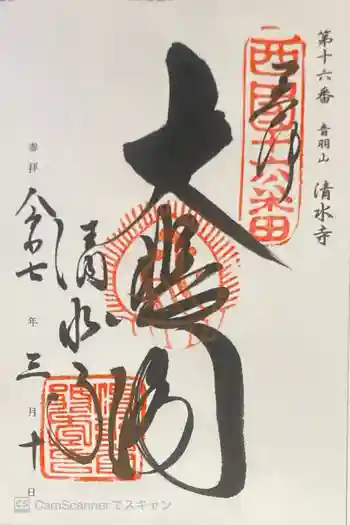 第十六番 音羽山 清水寺
西国十六番
奉拝
大悲閣
清水寺
令和七年三月十日
CS CamScannerでスキャン